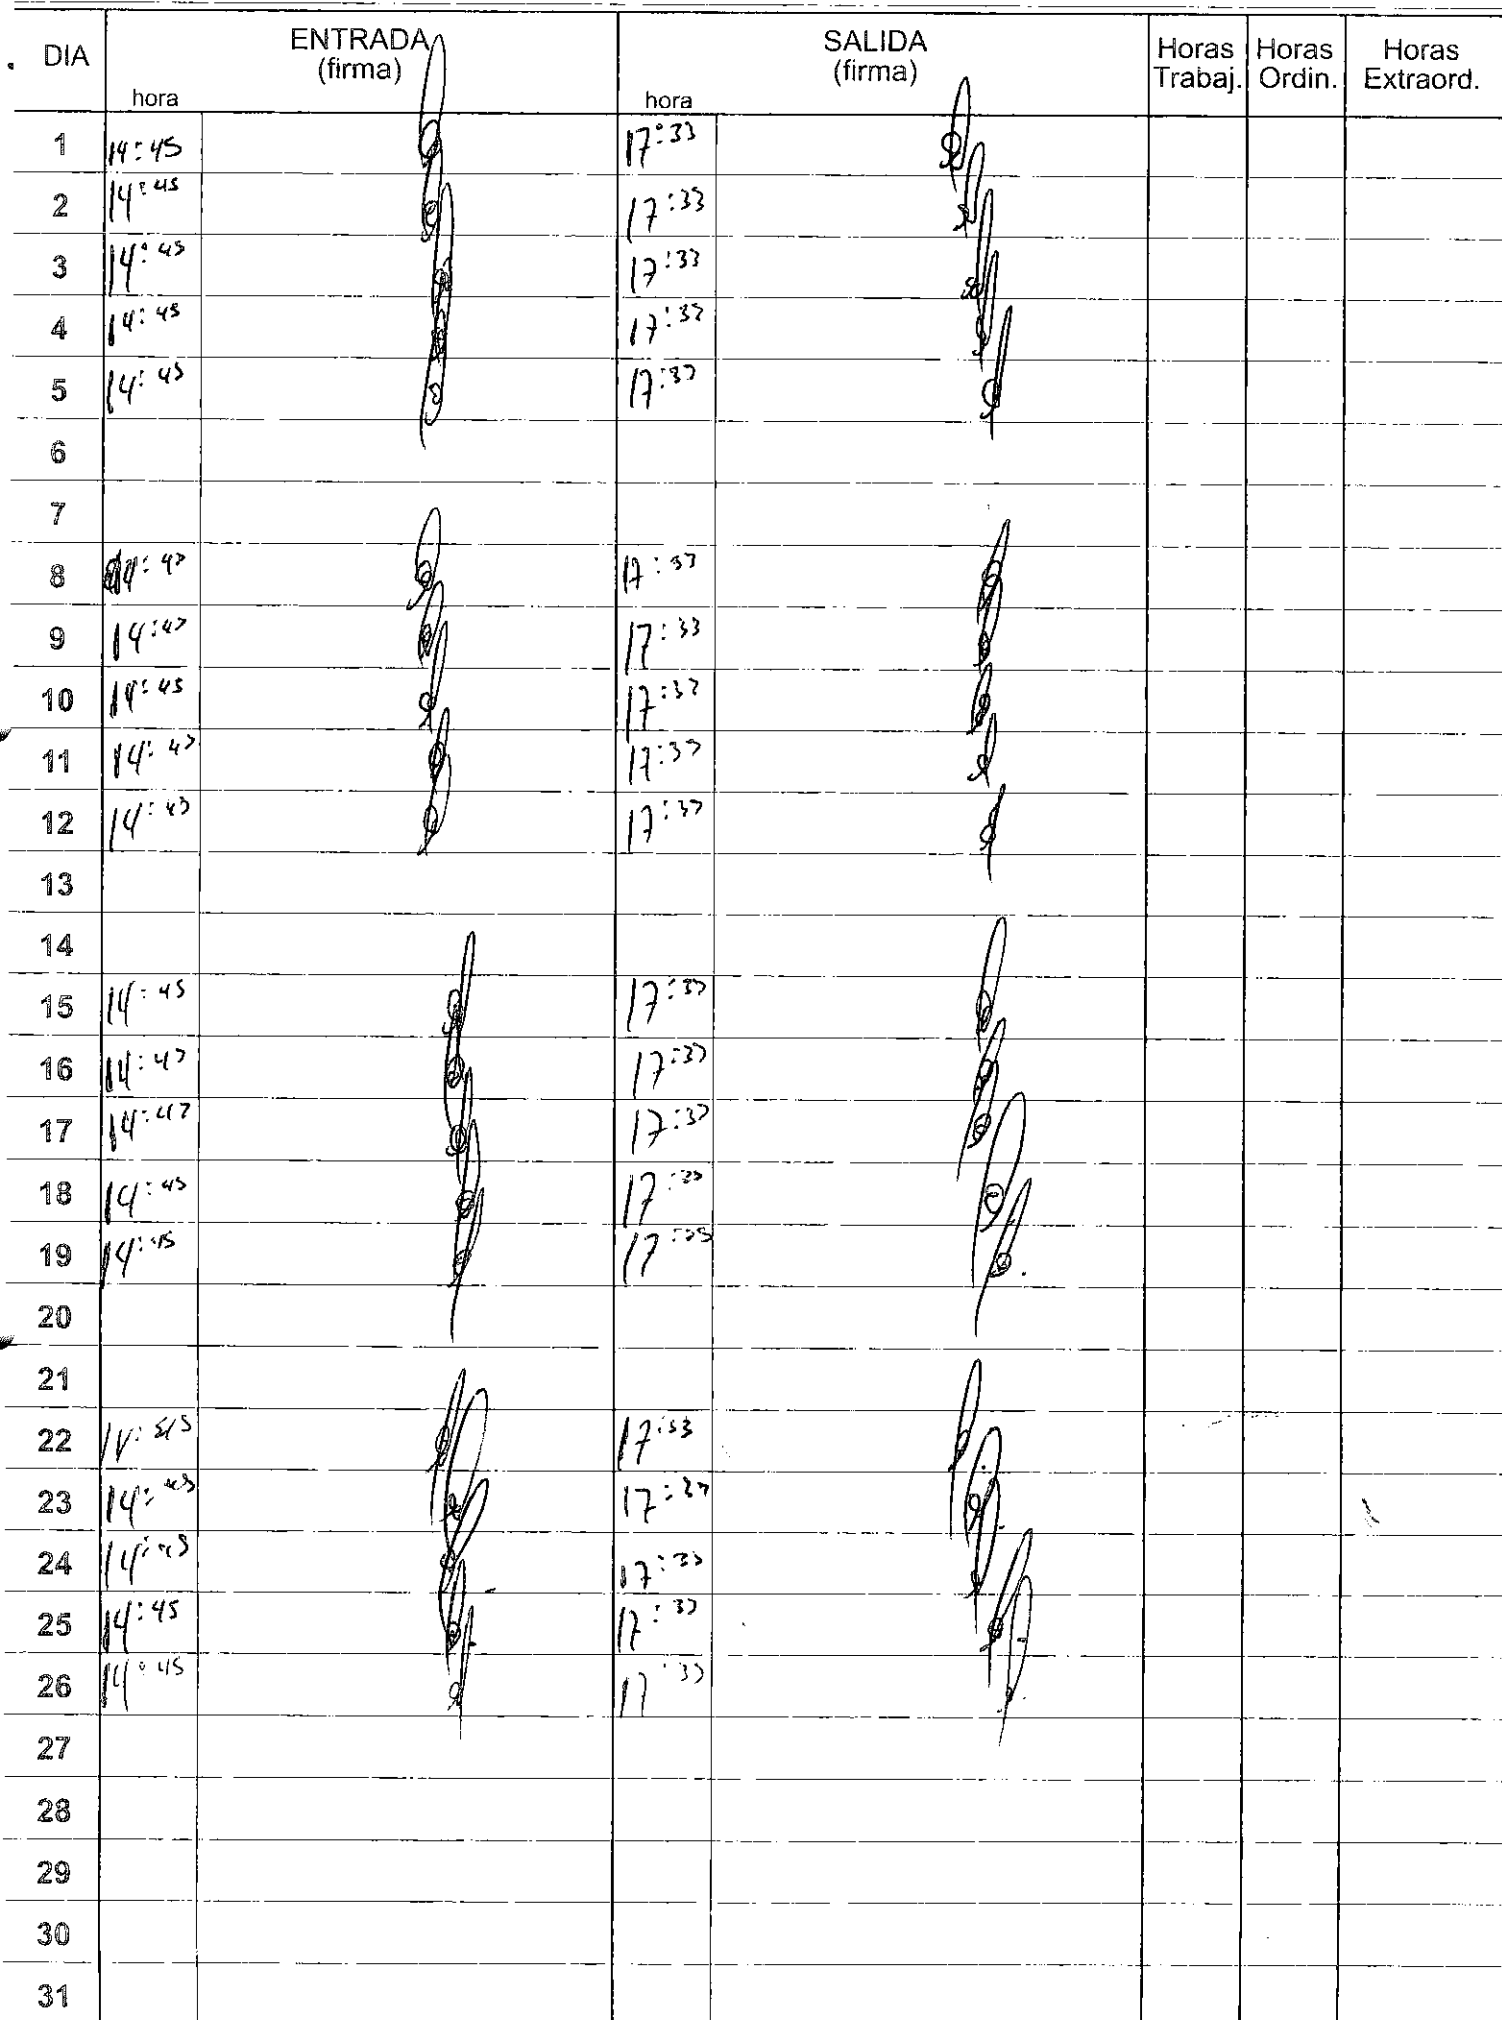 DIA ENTRADA (firma) hora SALIDA (firma) hora Horas Trabaj. Horas Ordin. Horas Extraord.
1 14:45 17:33
2 14:45 17:33
3 14:45 17:33
4 14:45 17:33
5 14:45 17:33
6
7
8 14:45 17:33
9 14:45 17:33
10 14:45 17:33
11 14:45 17:33
12 14:45 17:33
13
14
15 14:45 17:33
16 14:45 17:33
17 14:45 17:33
18 14:45 17:33
19 14:45 17:33
20
21
22 17:33
23 14:45 17:33
24 14:45 17:33
25 14:45 17:33
26 14:45 17:33
27
28
29
30
31